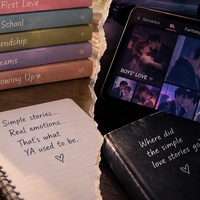 First Love
School
iendship
eams
owing Up ♡
Simple stories...
Real emotions...
That's what
YA used to be.
♡
Romance
BL
Fantasy
BOYS' LOVE
Where did
the simple
love stories go
♡